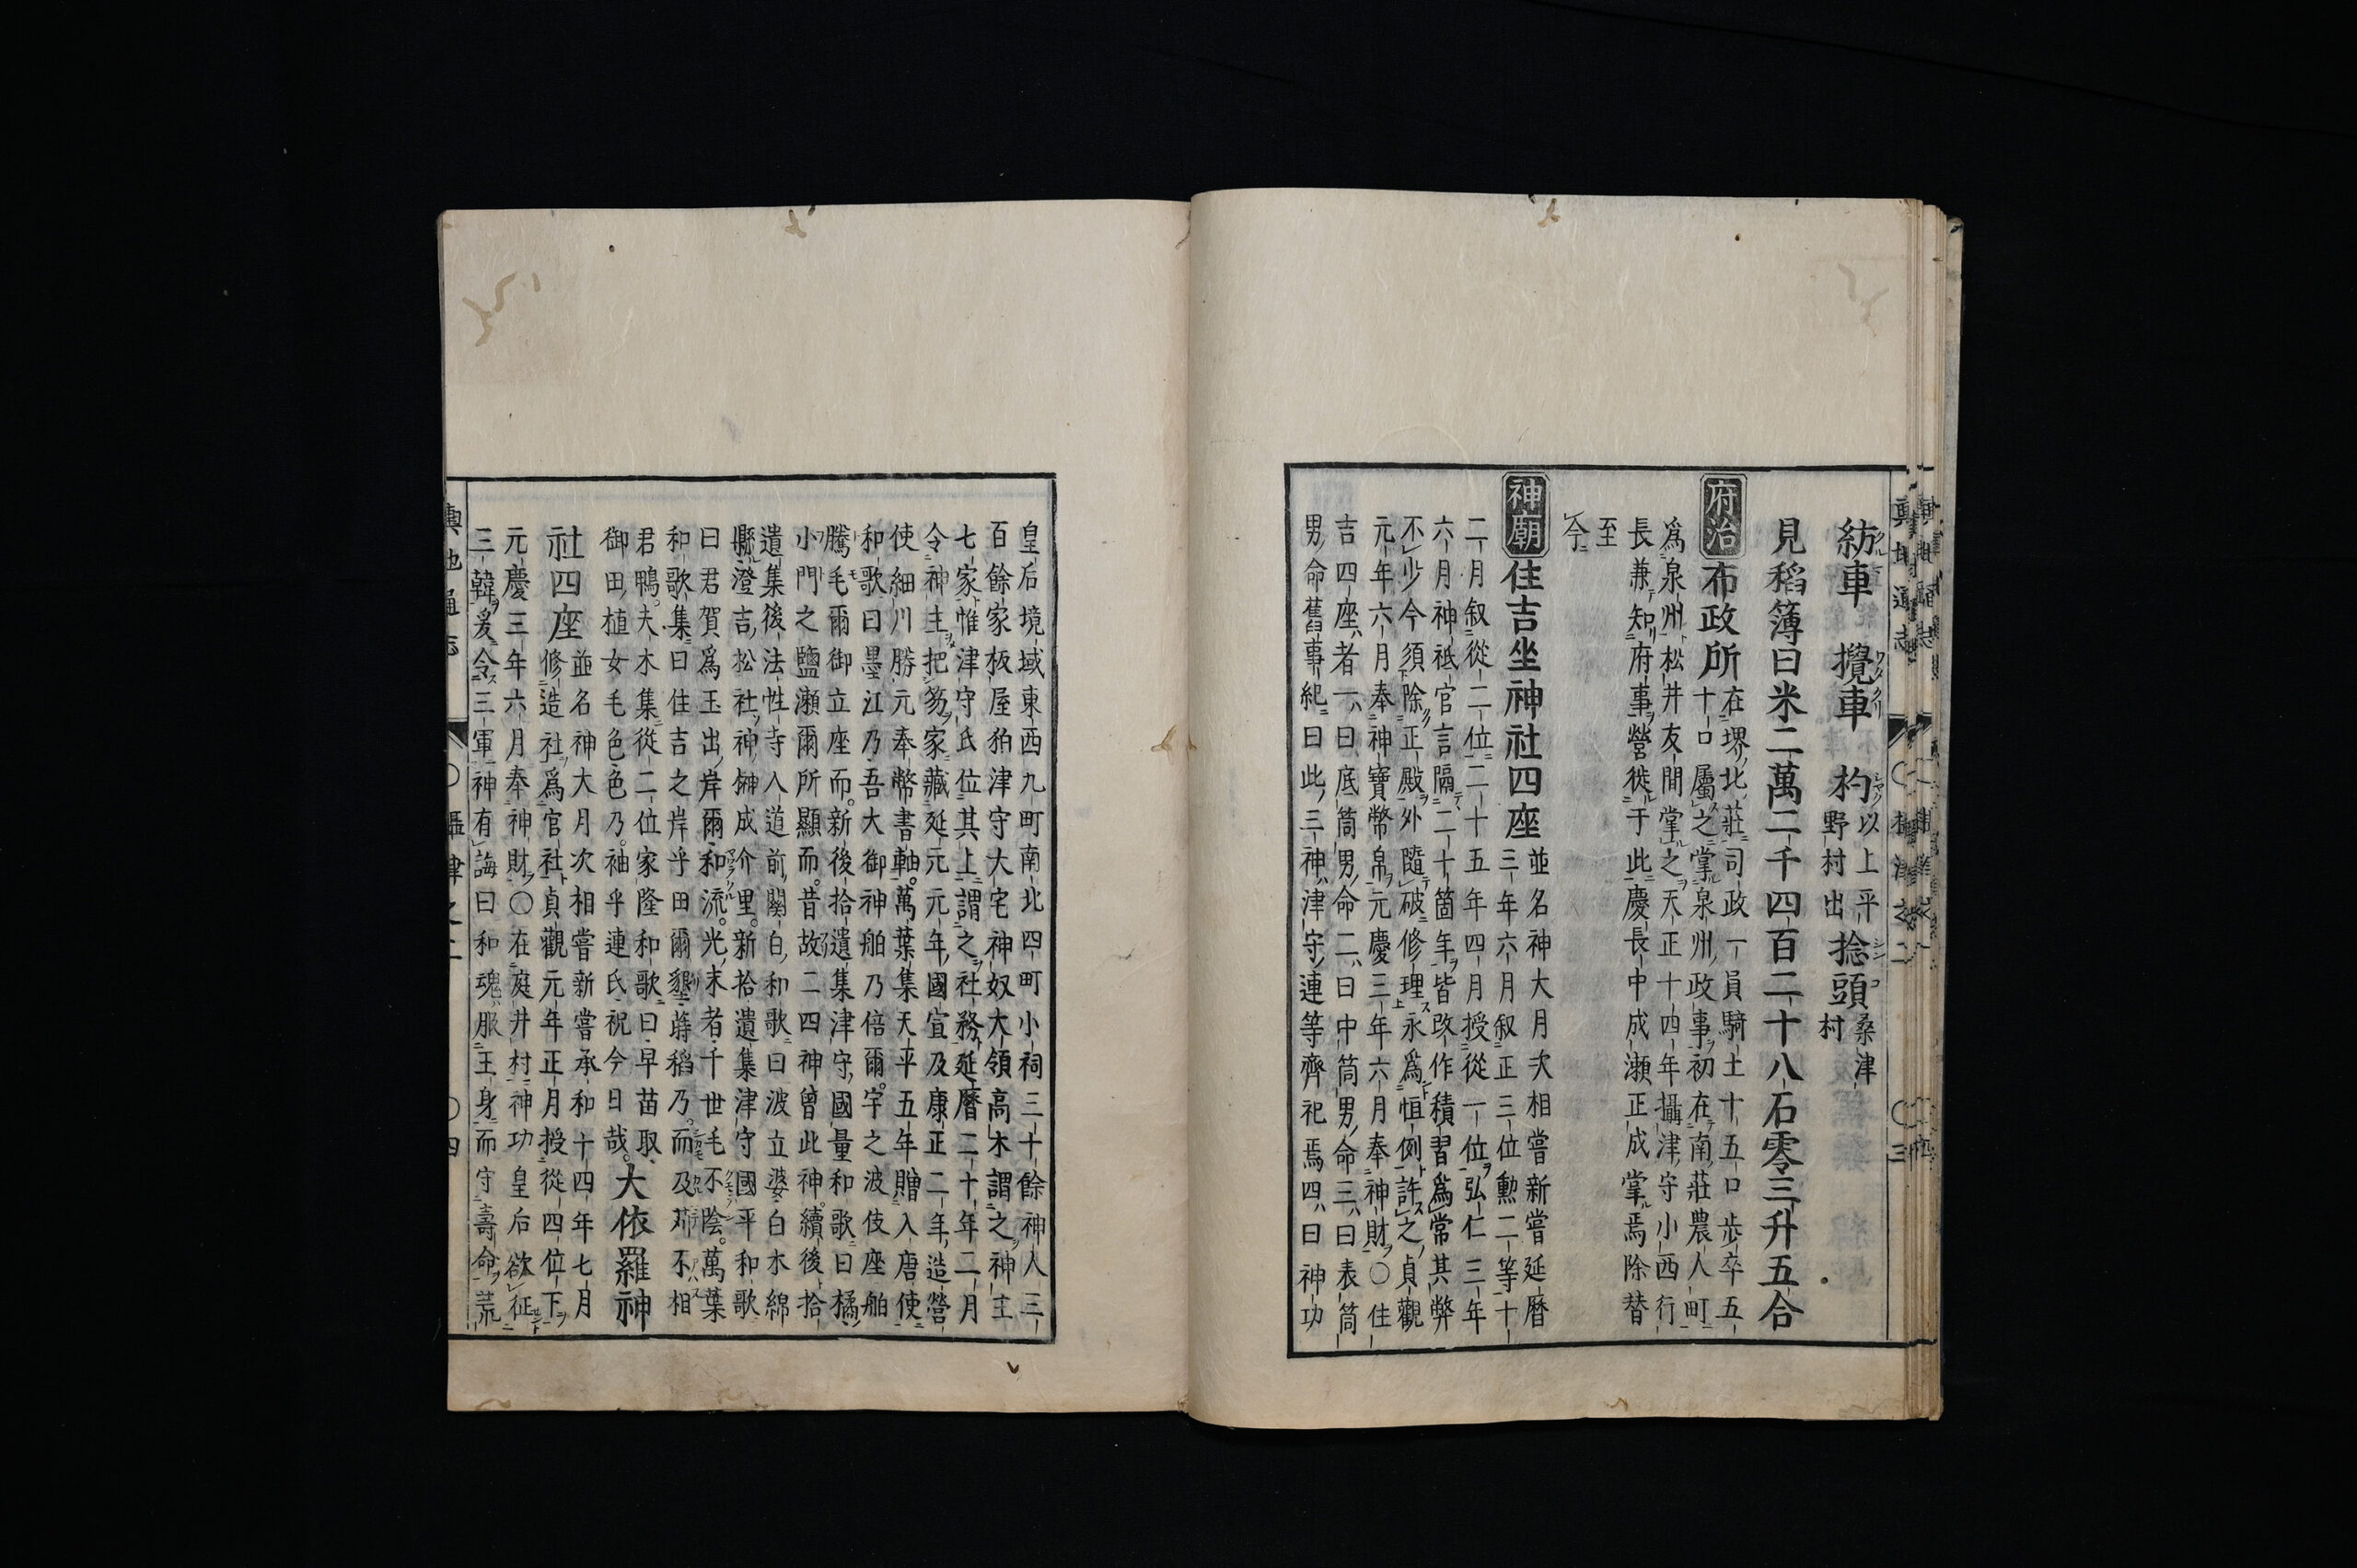 紡車　攪車　杓以上平野村出　捻頭桑津村
見稻簿曰米二萬二千四百二十八石零三升五合
府治 布政所在堺北莊司政一員騎士十五口步卒五
十口屬之掌泉州政事初在南莊農人町
爲泉州松井友間掌之天正十四年攝津守小西行
長兼知府事營徙于此慶長中成瀬正成掌焉除替
至
今
神廟 住吉坐神社四座並名神大月次相嘗新嘗延曆
三年六月叙正三位勳二等十
二月叙從二位二十五年四月授從一位弘仁三年
六月神祇官言隔二十箇年皆改作積習爲常其弊
不少今須除正殿外隨破修理永爲恒例許之貞觀
元年六月奉神寶幣帛元慶三年六月奉神財〇住
吉四座者一曰底筒男命二曰中筒男命三曰表筒
男命舊事紀曰此三神津守連等齊祀焉四曰神功
皇后境域東西九町南北四町小祠三十餘神人三
百餘家板屋狛津守大宅神奴大領高木謂之神主
七家惟津守氏位其上謂之社務延曆二十年二月
令神主把笏家藏延元元年國宣及康正二年造營
使細川勝元奉幣書軸萬葉集天平五年贈入唐使
和歌曰墨江乃吾大御神舶乃倍爾宇之波伎座舶
騰毛爾御立座而新後拾遺集津守國量和歌曰橘
小門之鹽瀬爾所顯而昔故二四神曾此神續後拾
遺集後法性寺入道前關白和歌曰波立婆白木綿
縣澄吉松社神榊成介里新拾遺集津守國平和歌
曰君賀爲玉出岸爾和流光末者千世毛不陰萬葉
和歌集曰住吉之岸乎田爾墾蒔稻乃而及苅不相
君鴨夫木集從二位家隆和歌曰早苗取
御田植女毛色色乃袖乎連氏祝今日哉 大依羅神
社四座並名神大月次相嘗新嘗承和十四年七月
修造社爲官社貞觀元年正月授從四位下
元慶三年六月奉神財〇在庭井村神功皇后欲征
三韓爰令三軍神有誨曰和魂服王身而守壽命荒